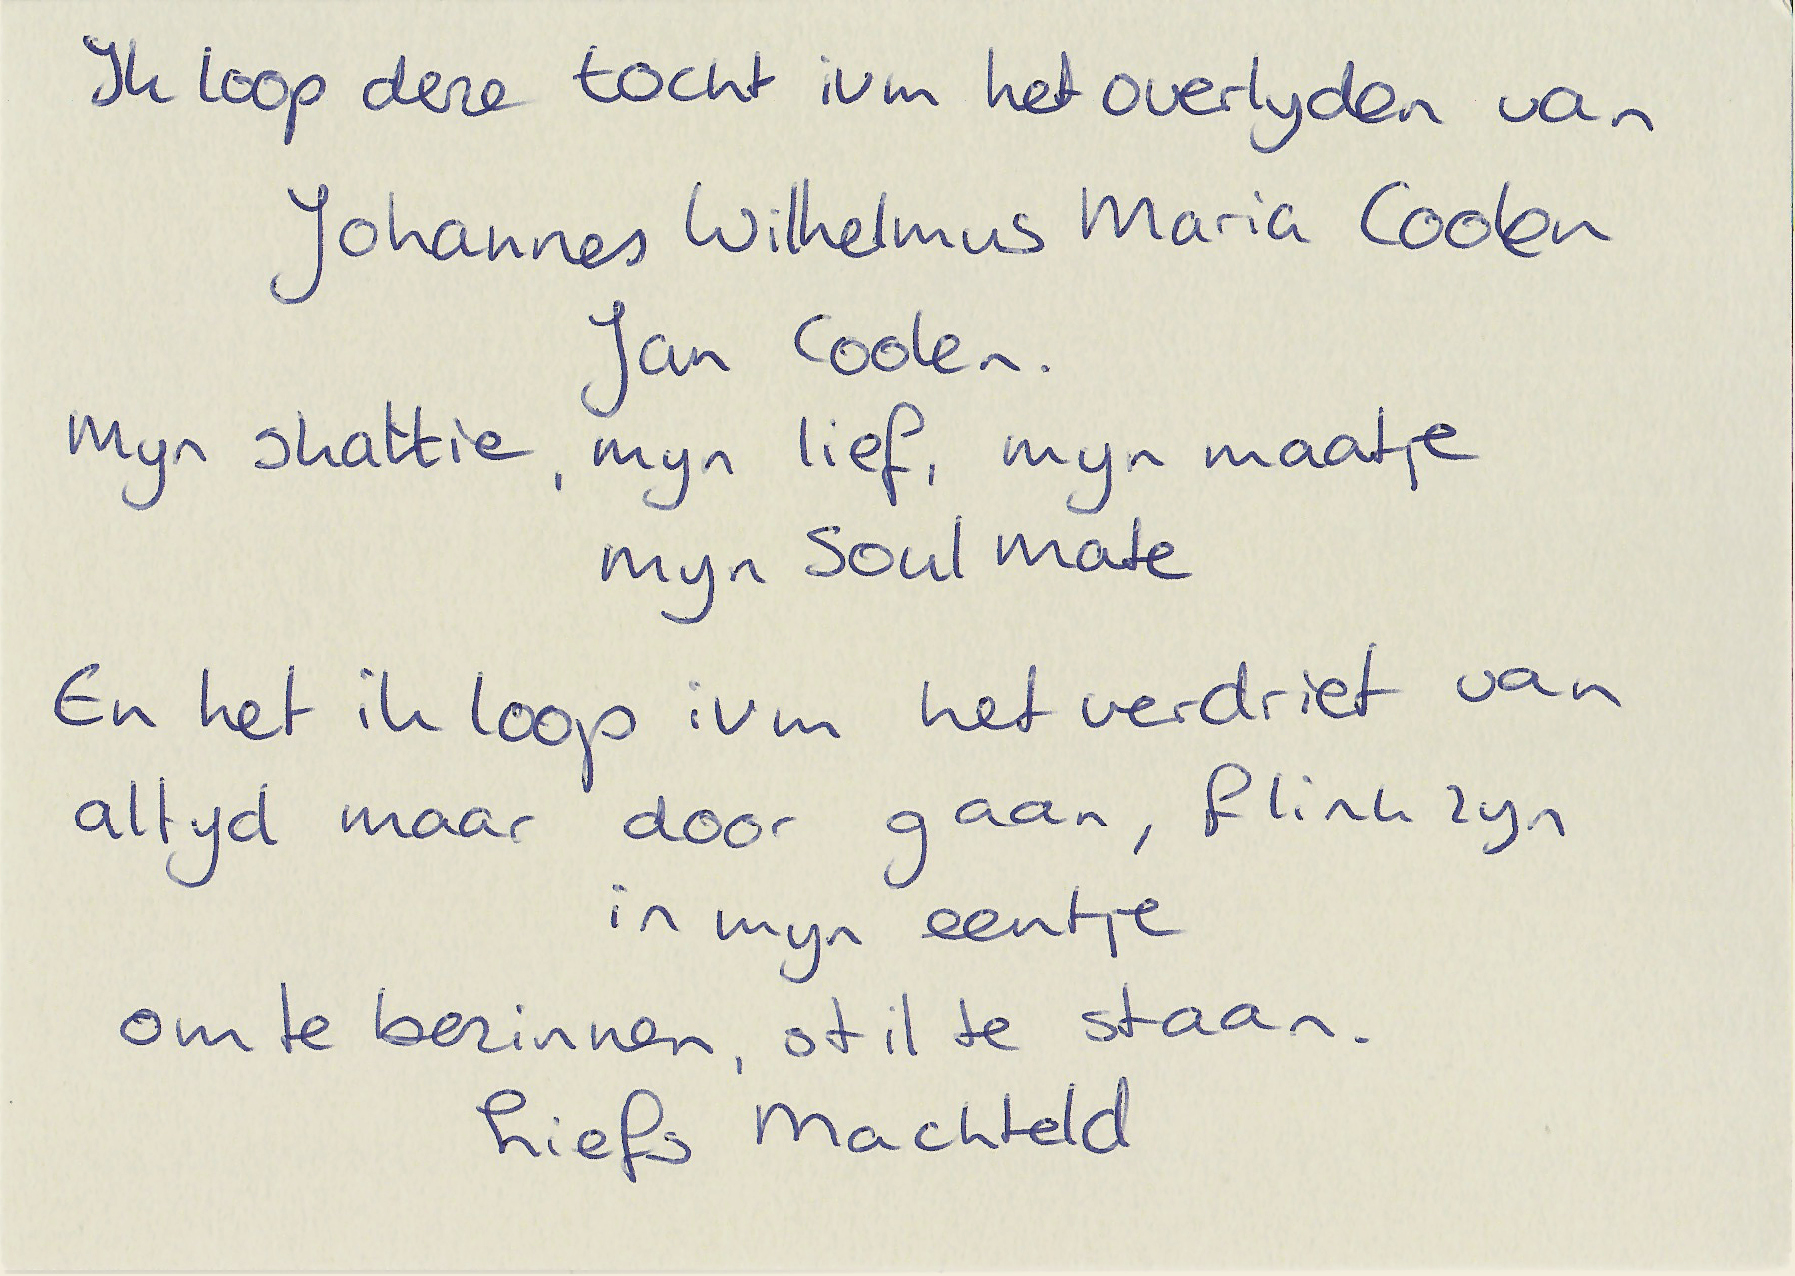 Ik loop deze tocht ivm het overlyden van
Johannes Wilhelmus Maria Coolen
Jan Coolen.
Myn skattie, myn lief, myn maatje
myn Soulmate
En het ik loop ivm het verdriet van
altyd maar door gaan, flink zyn
in myn eentje
om te bezinnen, stil te staan.
Liefs Machteld